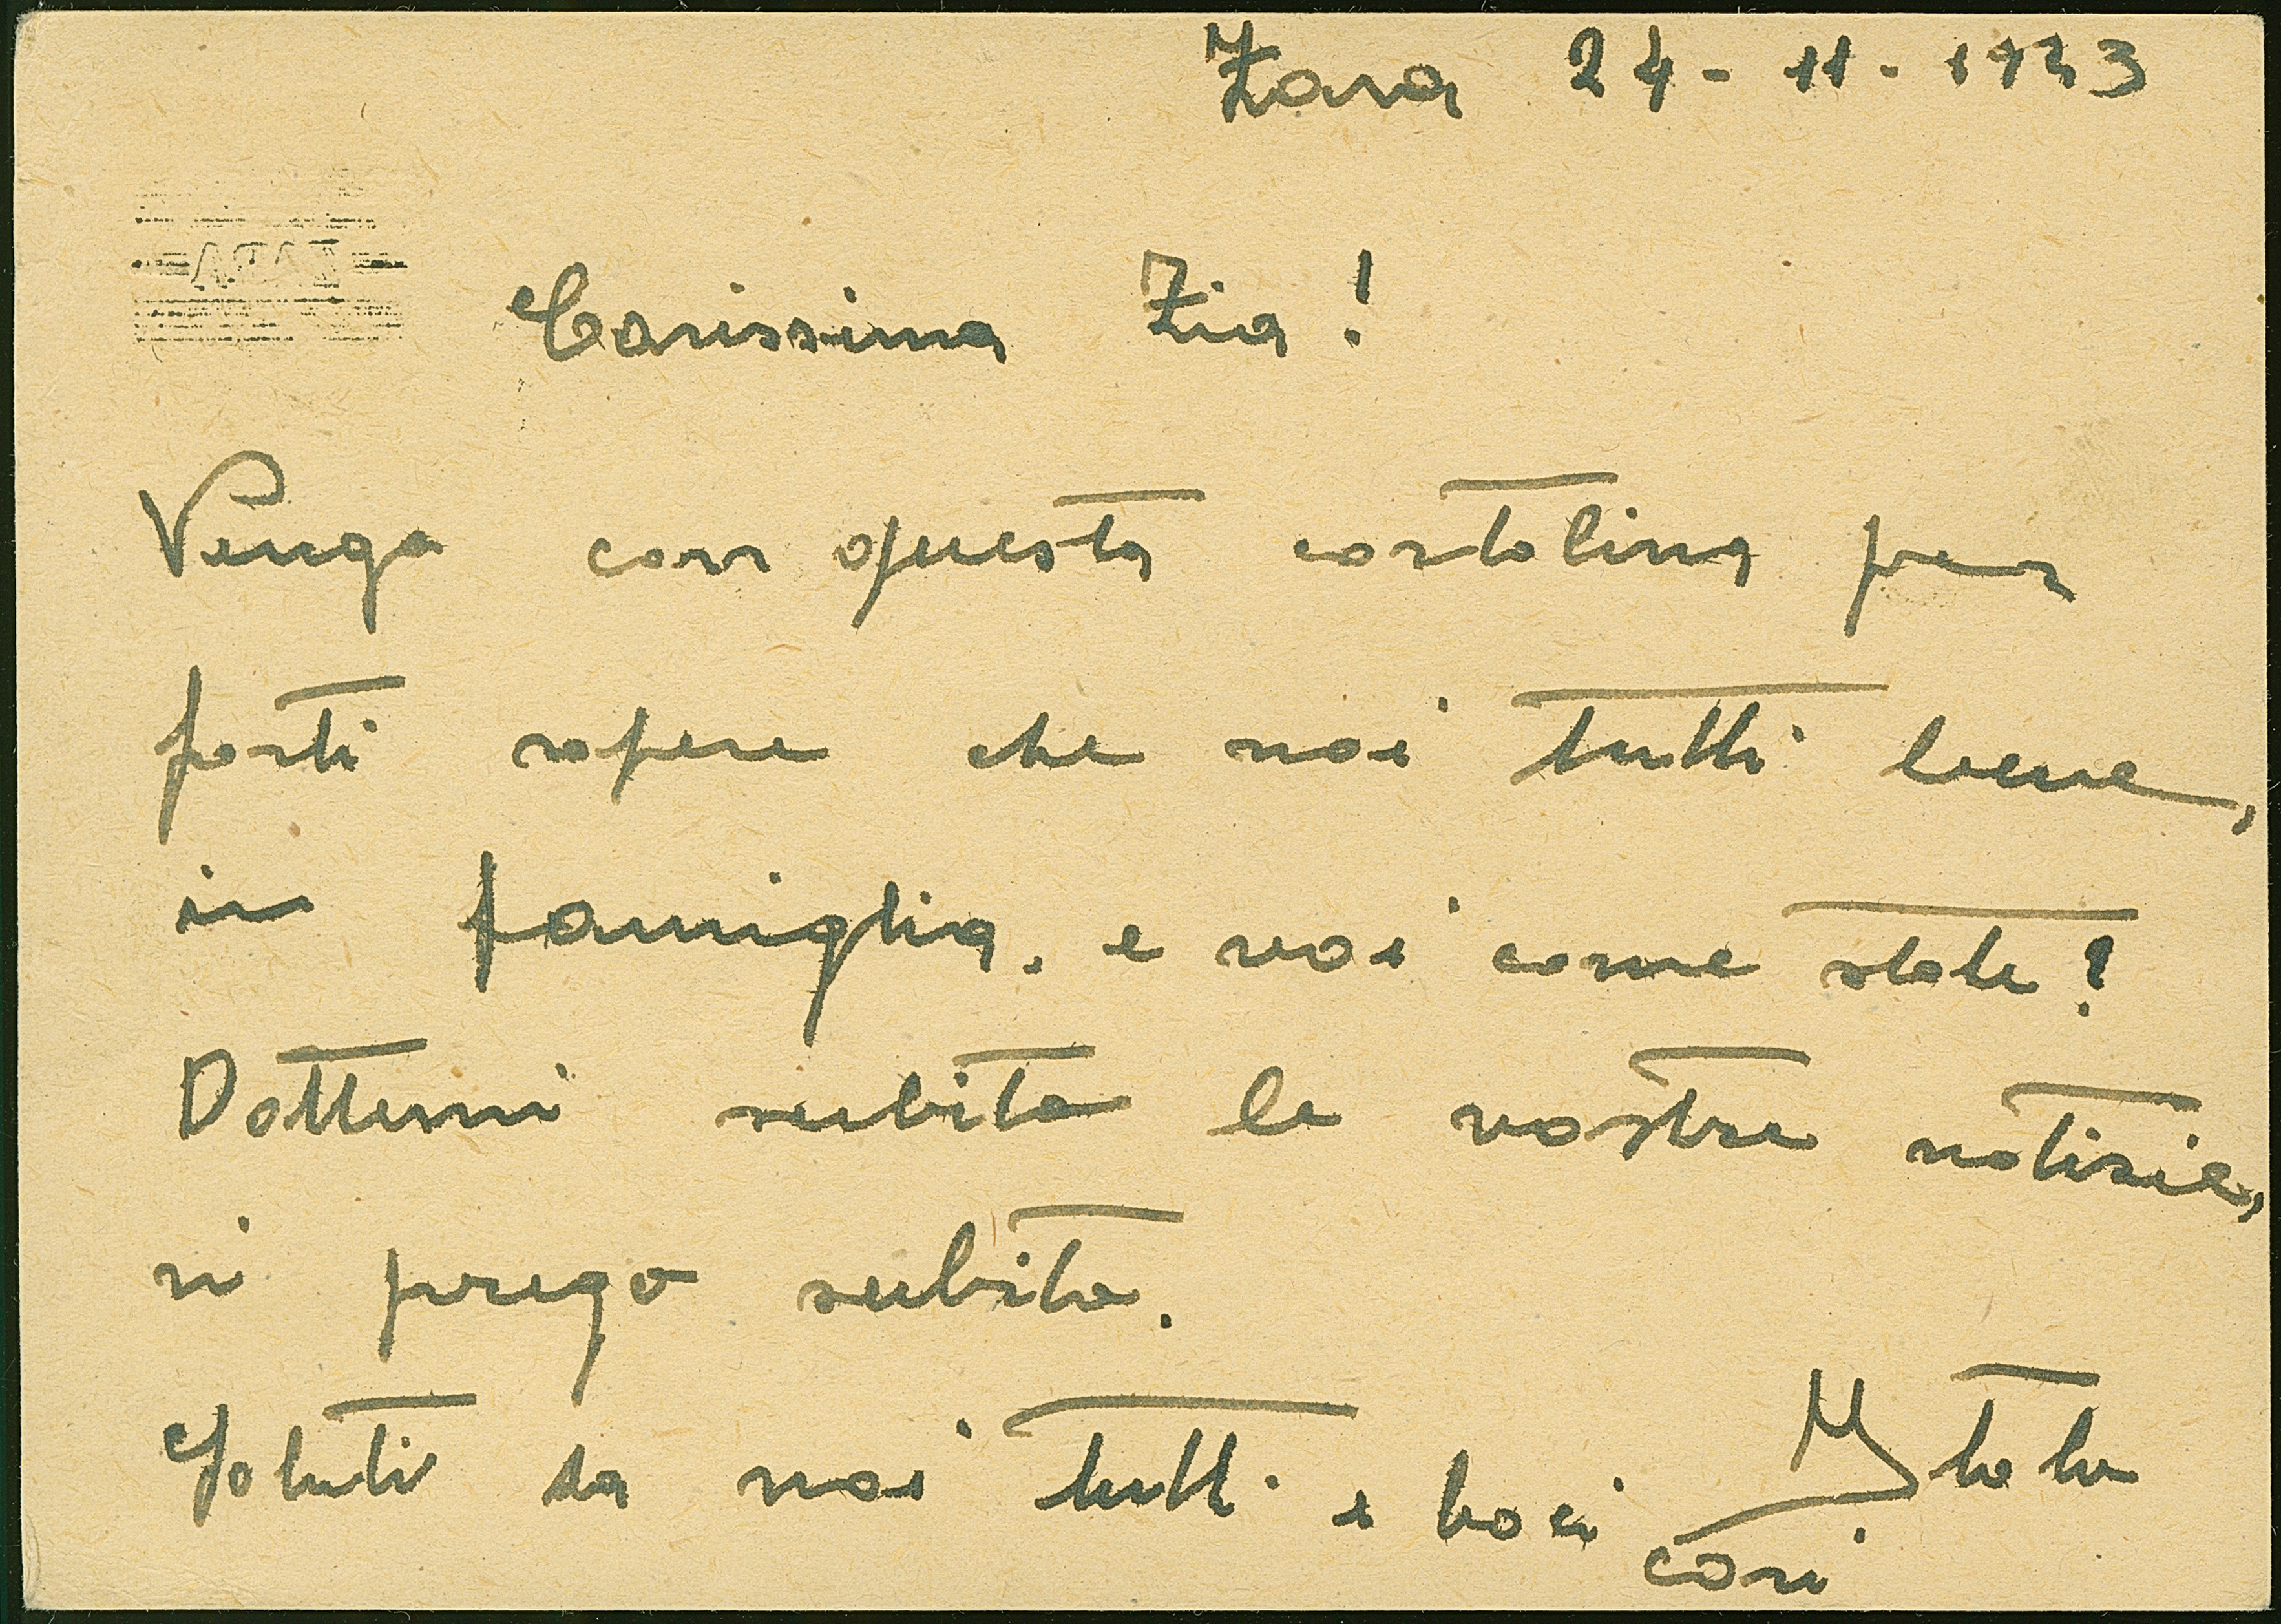 Zara 24-11-1943
ZARA
Carissima Zia!
Vengo con questa cartolina per
farti sapere che noi tutti bene,
in famiglia. e voi come state?
Dattemi subito le vostre notizie,
vi prego subito.
Saluti da noi tutti e baci
cari